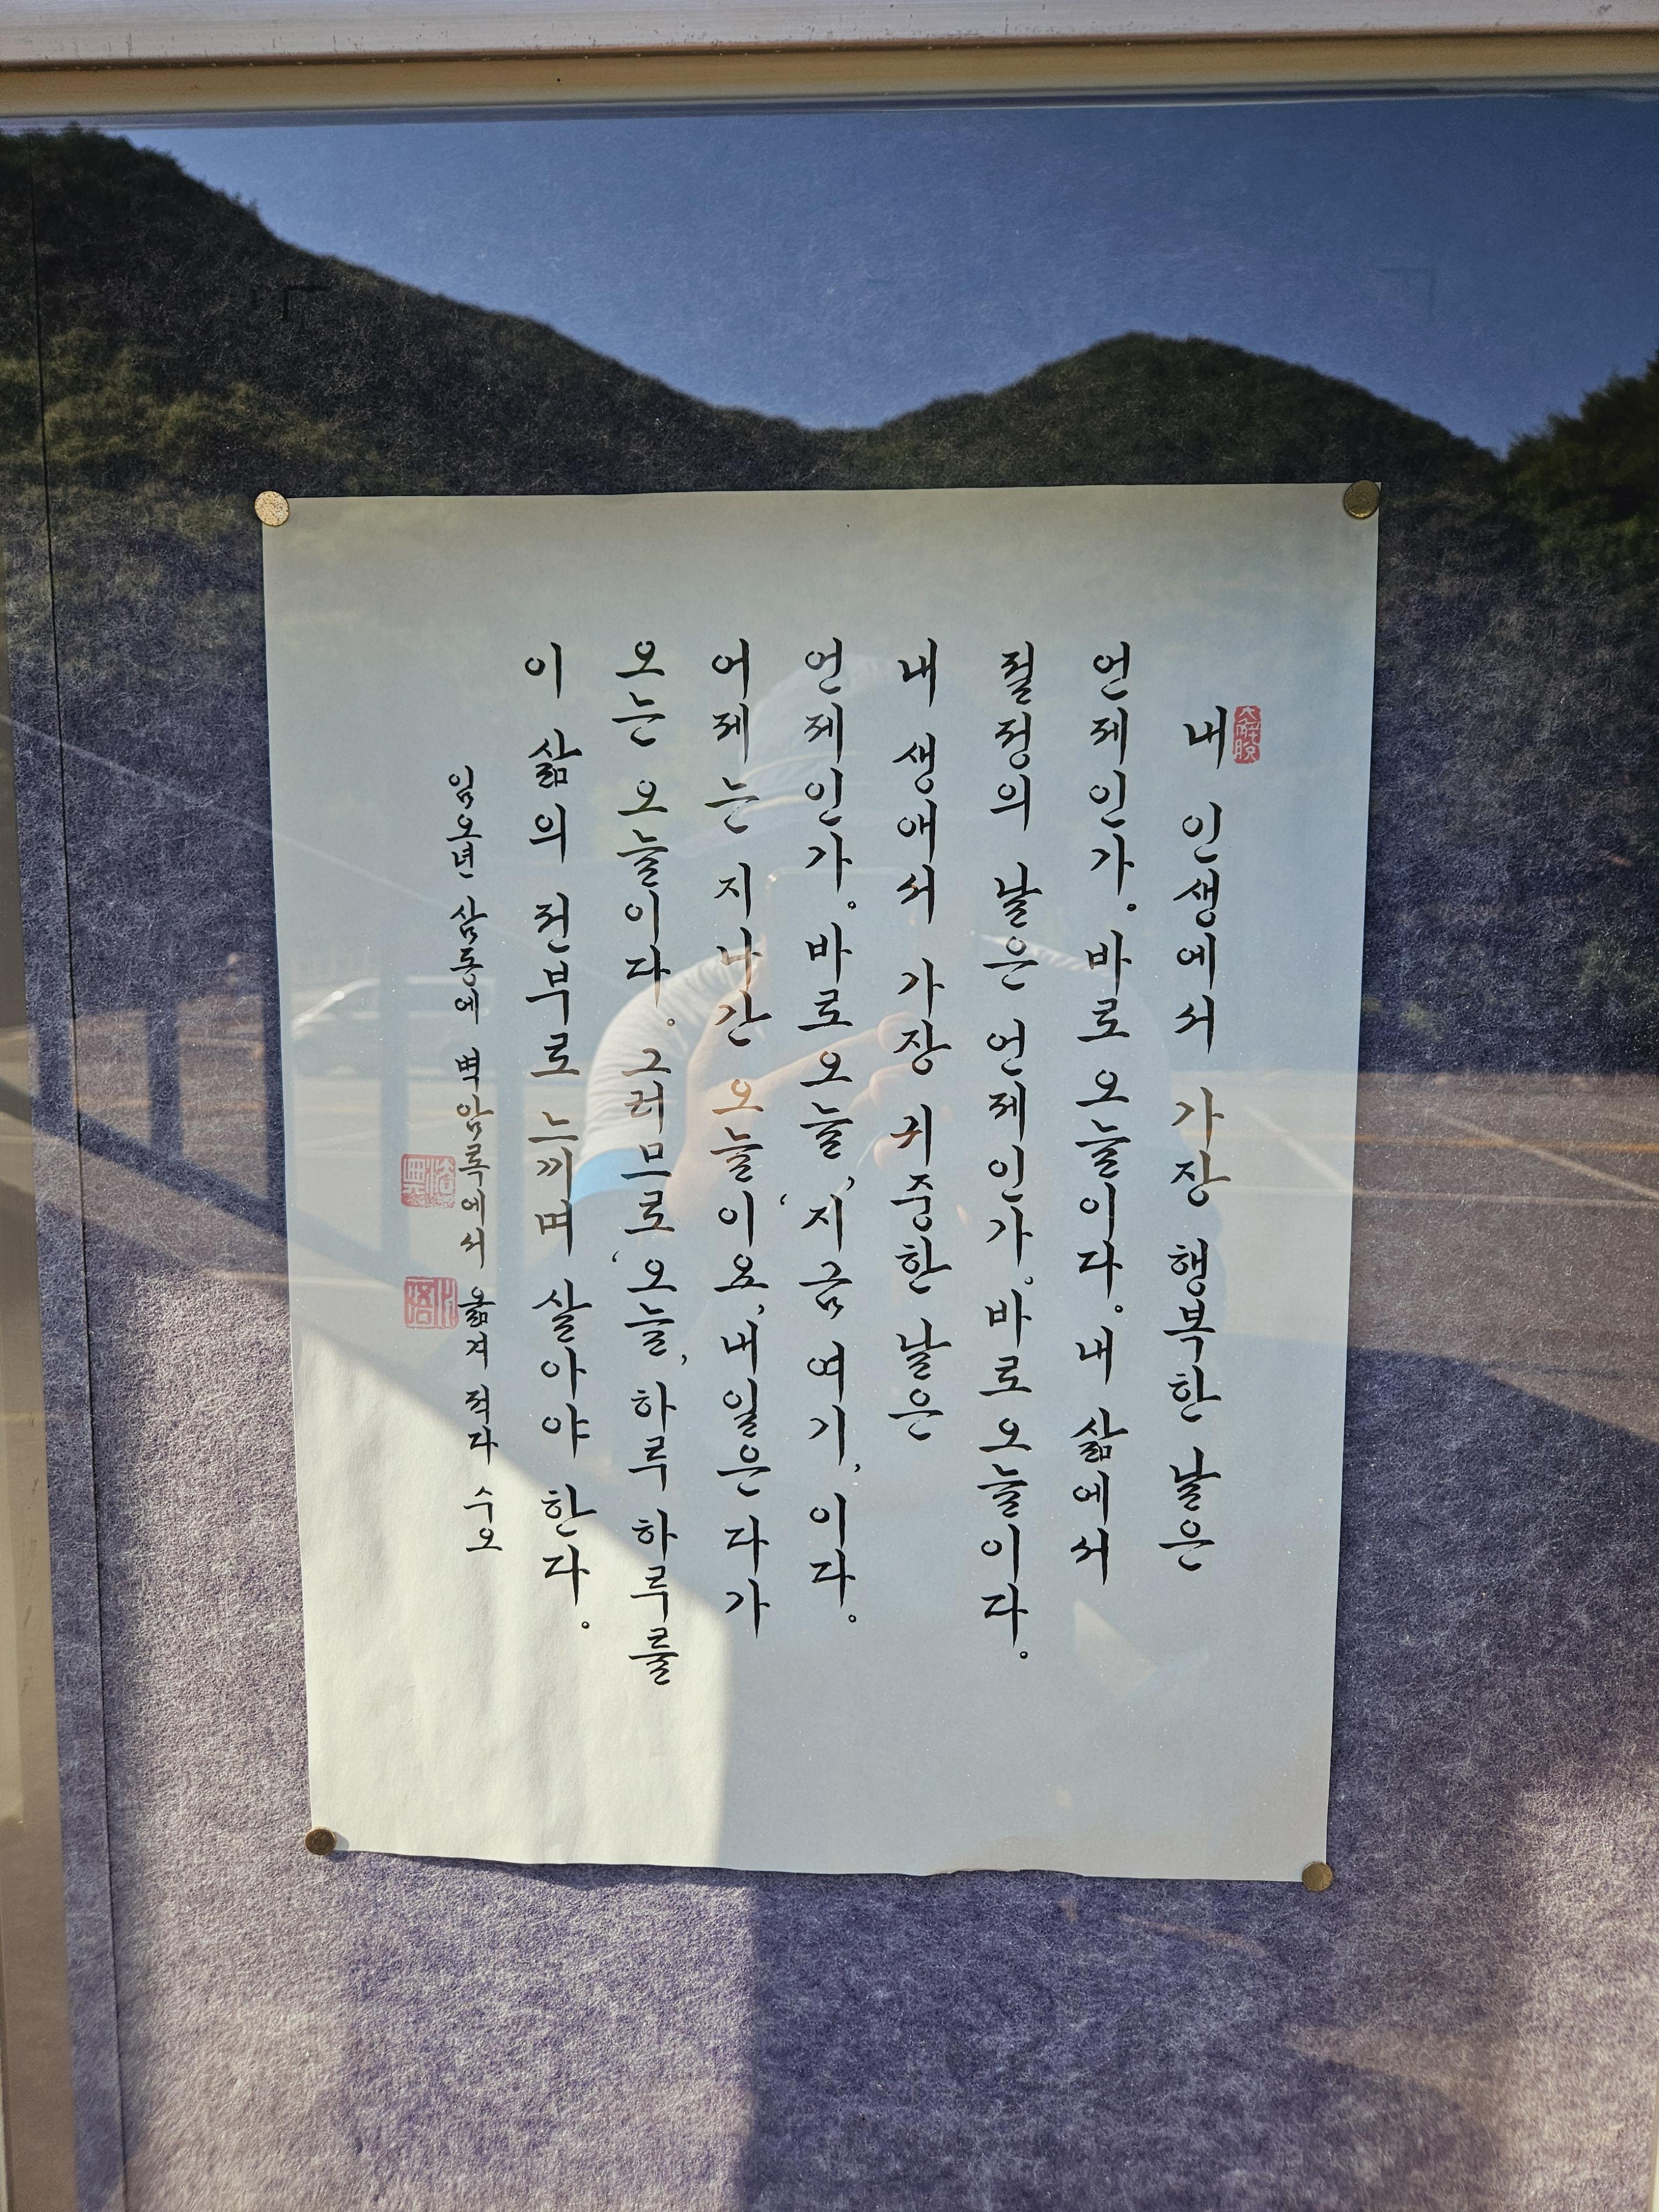 내 인생에서 가장 행복한 날은
언제인가. 바로 오늘이다. 내 삶에서
절정의 날은 언제인가. 바로 오늘이다.
내 생애서 가장 귀중한 날은
언제인가. 바로 오늘, '지금 여기' 이다.
어제는 지나간 오늘이요, 내일은 다가
오는 오늘이다. 그러므로 '오늘' 하루 하루를
이 삶의 전부로 느끼며 살아야 한다.
임오년 삼동에 벽암록에서 옮겨 적다 수오